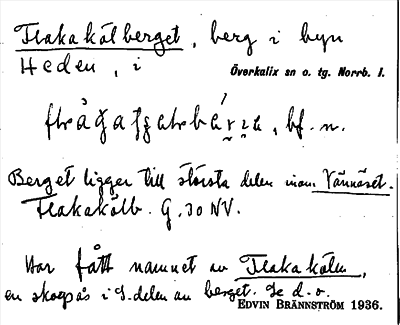 Flakakälberget, berg i byn
Heden, i Överkalix sn o. tg. Norrb. l.
bf. n.
Berget ligger till största delen inom Vännäset.
Flakakälb. G. 30 NV.
Har fått namnet av Flakakälen,
en skogsås i S. delen av berget. Se d. o.
EDVIN BRÄNNSTRÖM 1936.